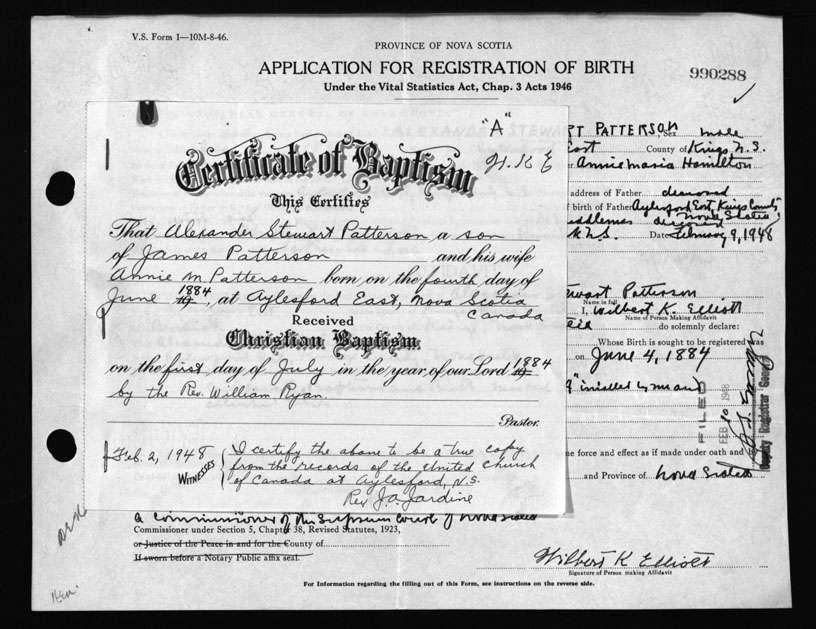 V.S. Form 1—10M-8-46.
PROVINCE OF NOVA SCOTIA
APPLICATION FOR REGISTRATION OF BIRTH
990288
Under the Vital Statistics Act, Chap. 3 Acts 1946
"A"
W.K E
Certificate of Baptism
This Certifies
That Alexander Stewart Patterson a son
of James Patterson and his wife
Annie M Patterson born on the fourth day of
June 1884, at Aylesford East, Nova Scotia
Canada
Received
Christian Baptism
on the first day of July in the year of our Lord 1884
by the Rev. William Ryan.
Pastor.
Feb. 2, 1948
WITNESSES
I certify the above to be a true copy
from the records of the United Church
of Canada at Aylesford, N.S.
Rev J.A. Jardine
RT PATTERSON, Sex male
County of Kings N.S.
Annie Maria Hamilton
address of Father deceased
of birth of Father Aylesford East, Kings County
Nova Scotia
N.S. Date February 9, 1948
wart Patterson
Name in full
I, Wilbert K. Elliott
Name of Person Making Affidavit
do solemnly declare:
Whose Birth is sought to be registered was
on June 4, 1884
FILED
FEB 10 1948
Deputy Registrar General
me force and effect as if made under oath and
and Province of Nova Scotia
a Commissioner of the Supreme Court of Nova Scotia
Commissioner under Section 5, Chapter 38, Revised Statutes, 1923,
or Justice of the Peace in and for the County of
If sworn before a Notary Public affix seal.
Wilbert K Elliott
Signature of Person making Affidavit
For Information regarding the filling out of this Form, see instructions on the reverse side.